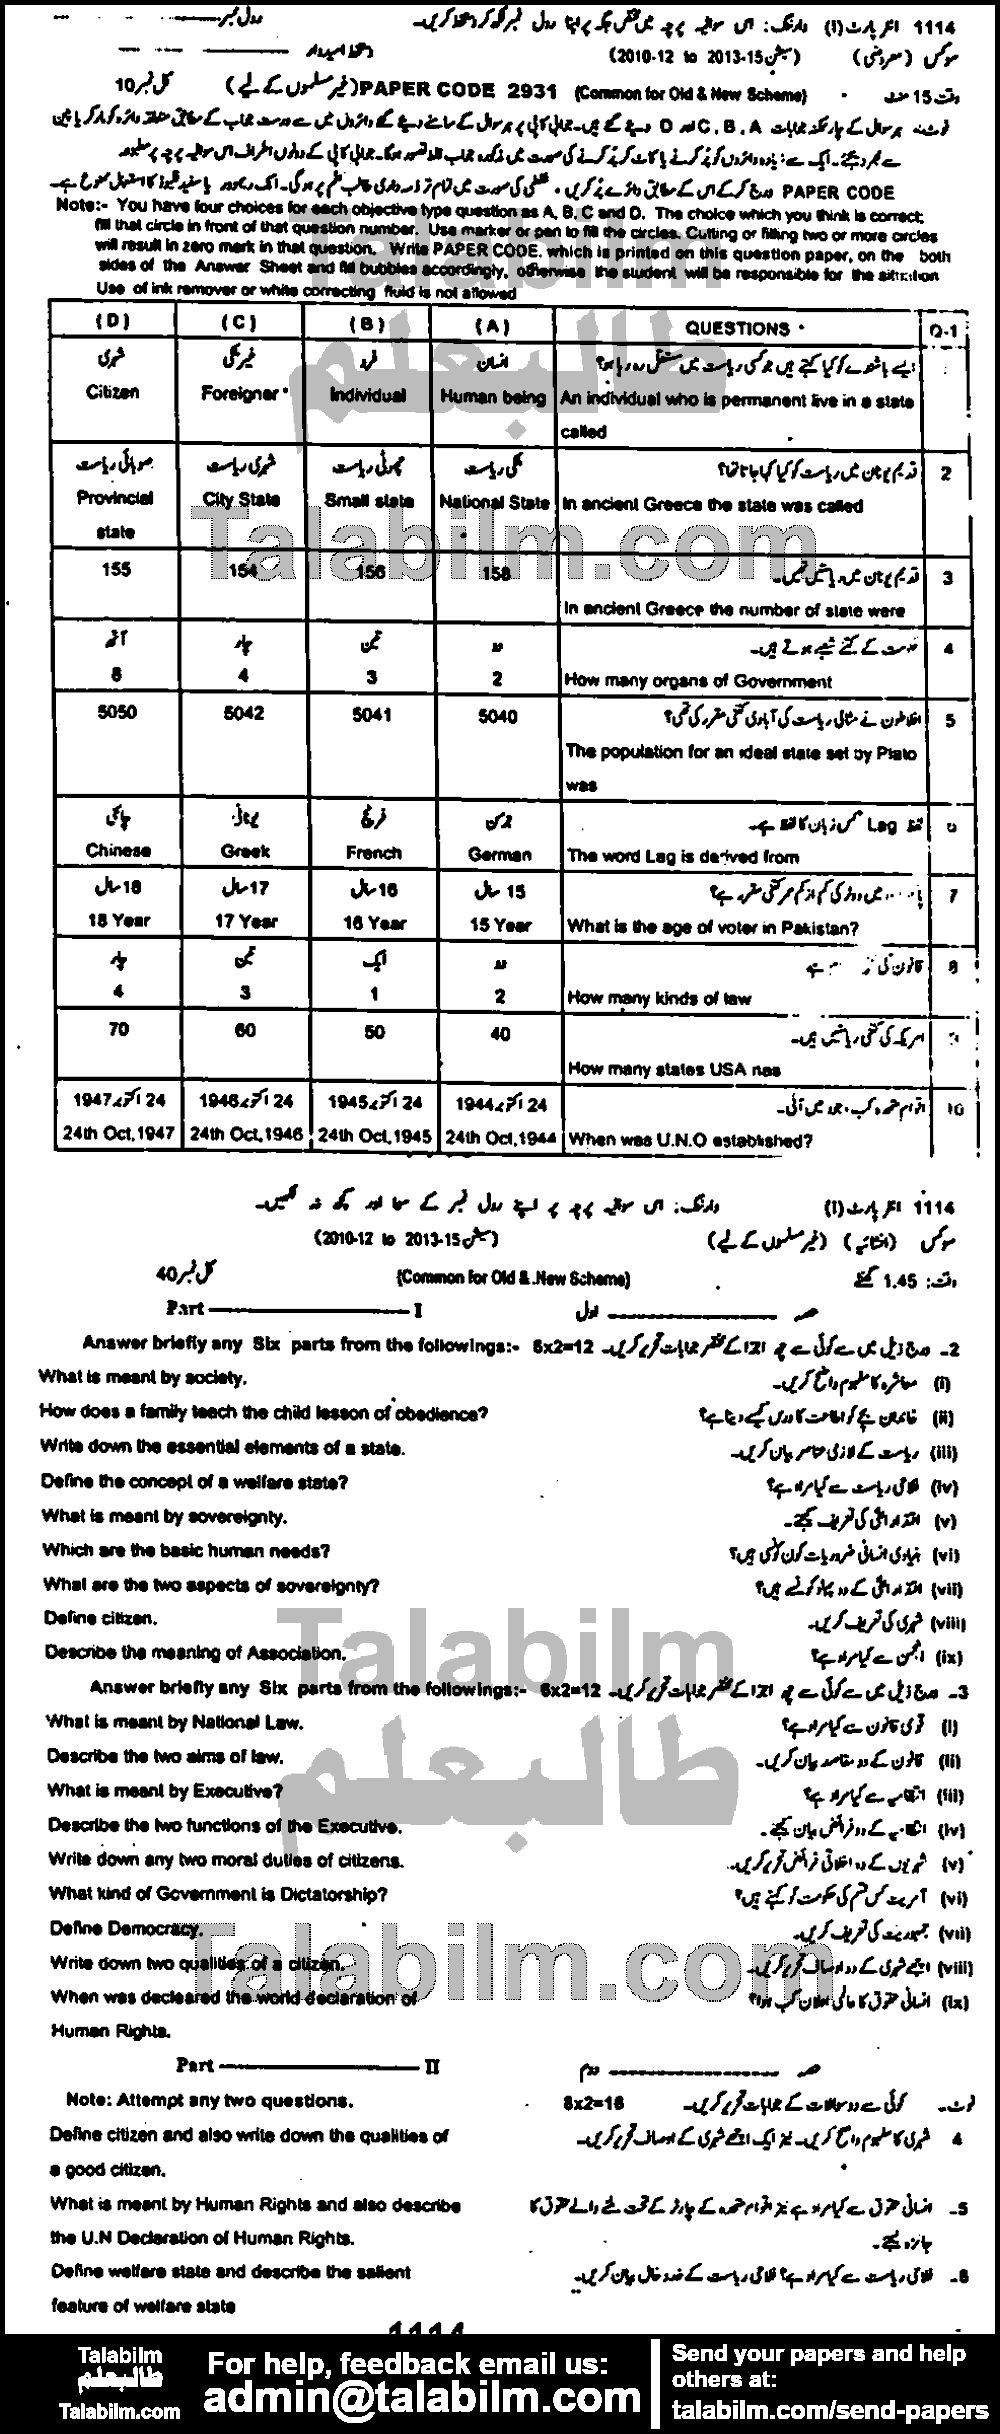 1114 انٹر پارٹ (I) وارننگ: اس سوالیہ پرچہ میں مختص جگہ پر اپنا رول نمبر لکھ کر دستخط کریں۔ رول نمبر
سوکس (معروضی) (سیشن 2013-15 to 2010-12) دستخط امیدوار
وقت 15 منٹ (Common for Old & New Scheme) PAPER CODE 2931 (غیر مسلموں کے لیے) کل نمبر 10
نوٹ:۔ ہر سوال کے چار ممکنہ جوابات C, B, A اور D دیئے گئے ہیں۔ جوابی کاپی پر ہر سوال کے سامنے دیئے گئے دائروں میں سے درست جواب کے مطابق متعلقہ دائرہ کو مارکر یا پین
سے بھر دیجئے۔ ایک سے زیادہ دائروں کو پُر کرنے یا کاٹ کر پُر کرنے کی صورت میں مذکورہ جواب غلط تصور ہوگا۔ جوابی کاپی کے دونوں اطراف اس سوالیہ پرچہ پر مطبوعہ
PAPER CODE درج کر کے اس کے مطابق دائرے پُر کریں،
Note:- You have four choices for each objective type question as A, B, C and D. The choice which you think is correct;
fill that circle in front of that question number. Use marker or pen to fill the circles. Cutting or filling two or more circles
will result in zero mark in that question. Write PAPER CODE. which is printed on this question paper, on the both
sides of the Answer Sheet and fill bubbles accordingly, otherwise the student will be responsible for the situation
Use of ink remover or white correcting fluid is not allowed
(D) (C) (B) (A) QUESTIONS Q-1
شہری غیر ملکی فرد انسان
Citizen Foreigner Individual Human being An individual who is permanent live in a state
called
صوبائی ریاست شہری ریاست چھوٹی ریاست ملکی ریاست قدیم یونان میں ریاست کو کیا کہا جاتا تھا؟ 2
Provincial City State Small state National State In ancient Greece the state was called
state
155 154 156 158 قدیم یونان میں ریاستیں تھیں۔ 3
In ancient Greece the number of state were
آٹھ چار تین دو حکومت کے کتنے شعبے ہوتے ہیں۔ 4
8 4 3 2 How many organs of Government
5050 5042 5041 5040 افلاطون نے مثالی ریاست کی آبادی کتنی مقرر کی تھی؟ 5
The population for an ideal state set by Plato
was
چائنی یونانی فرنچ جرمن لفظ Lag کس زبان کا لفظ ہے۔ 6
Chinese Greek French German The word Lag is derived from
18 سال 17 سال 16 سال 15 سال میں ووٹر کی کم از کم عمر کتنی مقرر ہے؟ 7
18 Year 17 Year 16 Year 15 Year What is the age of voter in Pakistan?
چار تین ایک دو قانون کی ہے 8
4 3 1 2 How many kinds of law
70 60 50 40 امریکہ کی کتنی ریاستیں ہیں۔ 9
How many states USA has
24 اکتوبر 1947 24 اکتوبر 1946 24 اکتوبر 1945 24 اکتوبر 1944 اقوام متحدہ کب وجود میں آئی۔ 10
24th Oct,1947 24th Oct,1946 24th Oct,1945 24th Oct,1944 When was U.N.O established?
1114 انٹر پارٹ (I) وارننگ: اس سوالیہ پرچہ پر اپنے رول نمبر کے سوا اور کچھ نہ لکھیں۔
سوکس (انشائیہ) (غیر مسلموں کے لیے) (سیشن 2013-15 to 2010-12)
وقت: 1.45 گھنٹے (Common for Old & .New Scheme) کل نمبر 40
Part I حصہ اول
Answer briefly any Six parts from the followings:- 6x2=12 درج ذیل میں سے کوئی سے چھ اجزا کے مختصر جوابات تحریر کریں۔ 2۔
What is meant by society. معاشرہ کا مفہوم واضح کریں۔ (i)
How does a family teach the child lesson of obedience? خاندان بچے کو اطاعت کا درس کیسے دیتا ہے؟ (ii)
Write down the essential elements of a state. ریاست کے لازمی عناصر بیان کریں۔ (iii)
Define the concept of a welfare state? فلاحی ریاست سے کیا مراد ہے؟ (iv)
What is meant by sovereignty. اقتدار اعلیٰ کی تعریف کیجئے۔ (v)
Which are the basic human needs? بنیادی انسانی ضروریات کون کونسی ہیں؟ (vi)
What are the two aspects of sovereignty? اقتدار اعلیٰ کے دو پہلو کونسے ہیں؟ (vii)
Define citizen. شہری کی تعریف کریں۔ (viii)
Describe the meaning of Association. انجمن سے کیا مراد ہے؟ (ix)
Answer briefly any Six parts from the followings:- 6x2=12 درج ذیل میں سے کوئی سے چھ اجزا کے مختصر جوابات تحریر کریں۔ 3۔
What is meant by National Law. قومی قانون سے کیا مراد ہے؟ (i)
Describe the two aims of law. قانون کے دو مقاصد بیان کریں۔ (ii)
What is meant by Executive? انتظامیہ سے کیا مراد ہے؟ (iii)
Describe the two functions of the Executive. انتظامیہ کے دو فرائض بیان کیجئے۔ (iv)
Write down any two moral duties of citizens. شہریوں کے دو اخلاقی فرائض تحریر کریں۔ (v)
What kind of Government is Dictatorship? آمریت کس قسم کی حکومت کو کہتے ہیں؟ (vi)
Define Democracy. جمہوریت کی تعریف کریں۔ (vii)
Write down two qualities of a citizen. اچھے شہری کے دو اوصاف تحریر کریں۔ (viii)
When was decleared the world declaration of انسانی حقوق کا عالمی اعلان کب ہوا؟ (ix)
Human Rights.
Part II حصہ دوم
Note: Attempt any two questions. 8x2=16 نوٹ۔ کوئی سے دو سوالات کے جوابات تحریر کریں۔
Define citizen and also write down the qualities of شہری کا مفہوم واضح کریں۔ نیز ایک اچھے شہری کے اوصاف تحریر کریں۔ 4
a good citizen.
What is meant by Human Rights and also describe انسانی حقوق سے کیا مراد ہے نیز اقوام متحدہ کے چارٹر کے تحت ملنے والے حقوق کا 5۔
the U.N Declaration of Human Rights. جائزہ لیجئے۔
Define welfare state and describe the salient فلاحی ریاست سے کیا مراد ہے؟ فلاحی ریاست کے خدوخال بیان کریں۔ 6۔
feature of welfare state
1114
Talabilm
طالبعلم
Talabilm.com
For help, feedback email us:
admin@talabilm.com
Send your papers and help
others at:
talabilm.com/send-papers